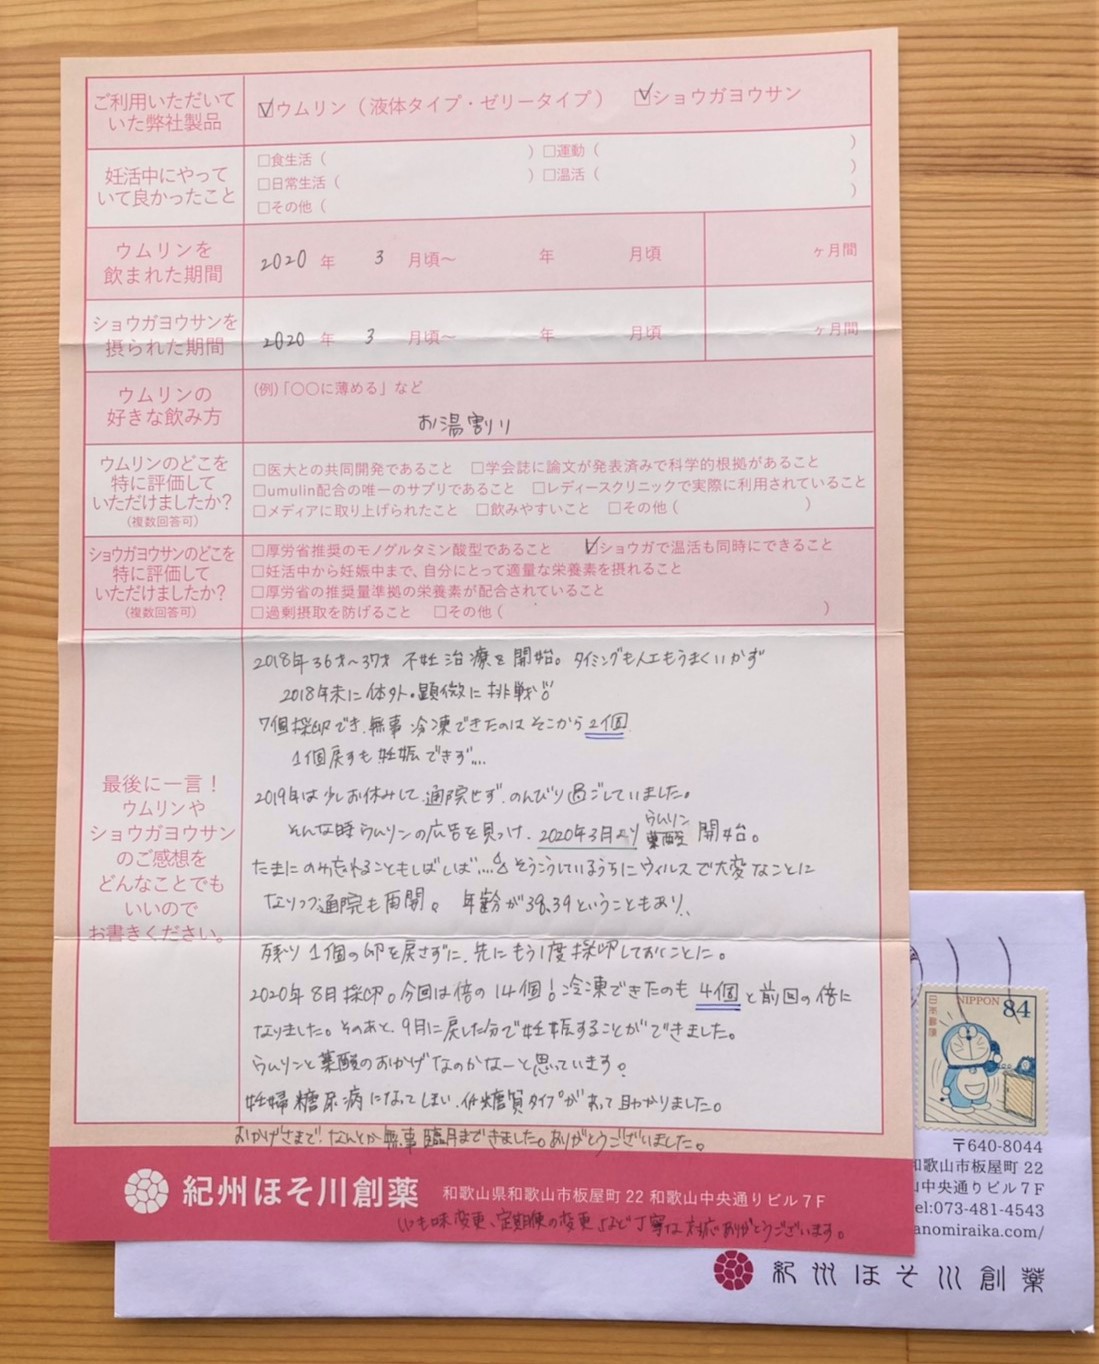 ご利用いただいて
いた弊社製品
☑ウムリン（液体タイプ・ゼリータイプ） ☑ショウガヨウサン
妊活中にやって
いて良かったこと
□食生活（ ）□運動（ ）
□日常生活（ ）□温活（ ）
□その他（ ）
ウムリンを
飲まれた期間
2020 年 3 月頃〜 年 月頃 ヶ月間
ショウガヨウサンを
摂られた期間
2020 年 3 月頃〜 年 月頃 ヶ月間
ウムリンの
好きな飲み方
(例)「〇〇に薄める」など
お湯割り
ウムリンのどこを
特に評価して
いただけましたか?
(複数回答可)
□医大との共同開発であること □学会誌に論文が発表済みで科学的根拠があること
□umulin配合の唯一のサプリであること □レディースクリニックで実際に利用されていること
□メディアに取り上げられたこと □飲みやすいこと □その他（ ）
ショウガヨウサンのどこを
特に評価して
いただけましたか?
(複数回答可)
□厚労省推奨のモノグルタミン酸型であること ☑ショウガで温活も同時にできること
□妊活中から妊娠中まで、自分にとって適量な栄養素を摂れること
□厚労省の推奨量準拠の栄養素が配合されていること
□過剰摂取を防げること □その他（ ）
最後に一言！
ウムリンや
ショウガヨウサン
のご感想を
どんなことでも
いいので
お書きください。
2018年36才〜37才 不妊治療を開始。タイミングも人工もうまくいかず
2018年末に体外・顕微に挑戦!!
7個採卵でき、無事冷凍できたのはそこから2個
1個戻すも妊娠できず...
2019年は少しお休みして、通院せず、のんびり過ごしていました。
そんな時ウムリンの広告を見つけ、2020年3月よりウムリン葉酸開始。
たまにのみ忘れることもしばしば....そうこうしているうちにウィルスで大変なことに
なりつつ通院も再開。 年齢が38、39ということもあり、
残り1個の卵を戻さずに、先にもう1度採卵しておくことに。
2020年8月採卵。今回は倍の14個！冷凍できたのも4個と前回の倍に
なりました。そのあと、9月に戻した分で妊娠することができました。
ウムリンと葉酸のおかげなのかなーと思っています。
妊婦糖尿病になってしまい、低糖質タイプがあって助かりました。
おかげさまで、なんとか無事臨月まできました。ありがとうございました。
紀州ほそ川創薬 和歌山県和歌山市板屋町22 和歌山中央通りビル7F
いつも味変更、定期便の変更など丁寧な対応ありがとうございます。
日本郵便
NIPPON 84
〒640-8044
和歌山市板屋町 22
山中央通りビル7F
tel:073-481-4543
anomiraika.com/
紀州ほそ川創薬